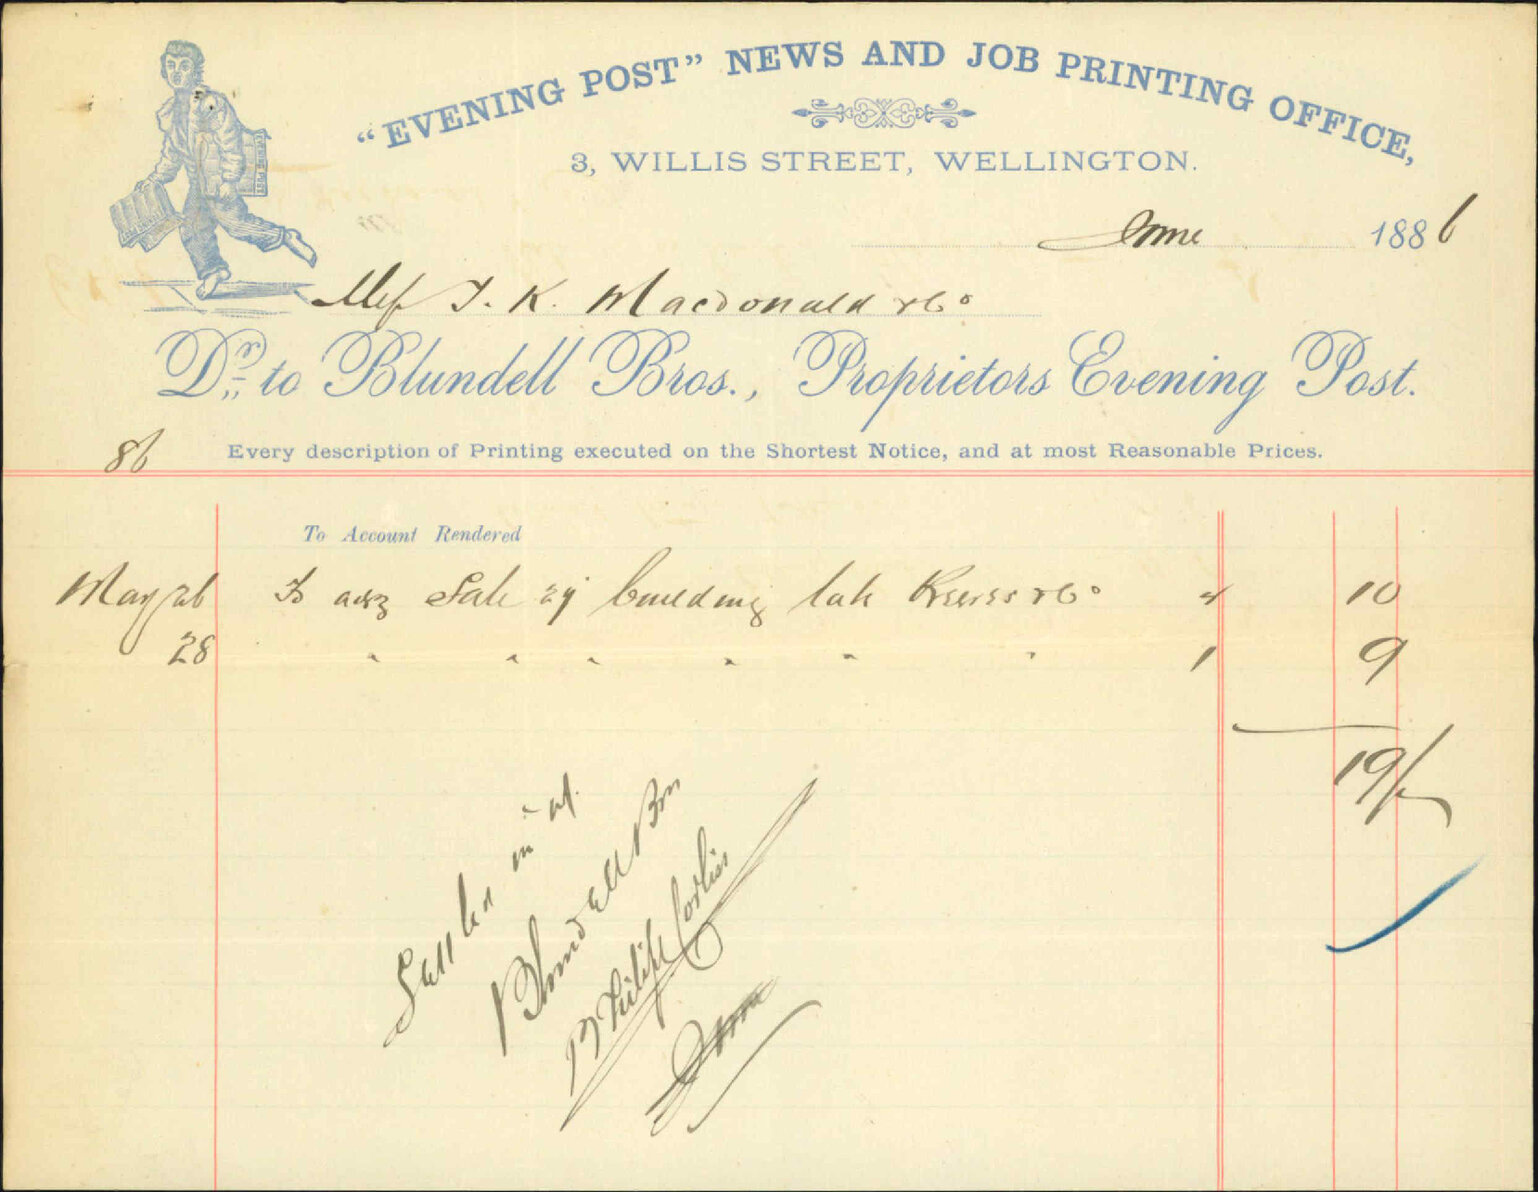 "EVENING POST" NEWS AND JOB PRINTING OFFICE,
3, WILLIS STREET, WELLINGTON.
June 1886
T. K. Macdonald & Co
Dr. to Blundell Bros., Proprietors Evening Post.
86 Every description of Printing executed on the Shortest Notice, and at most Reasonable Prices.
To Account Rendered
May 26 To Sale of building 10
28 " " " " " " 1 9
19/-
Settled in
Blundell Bros
June